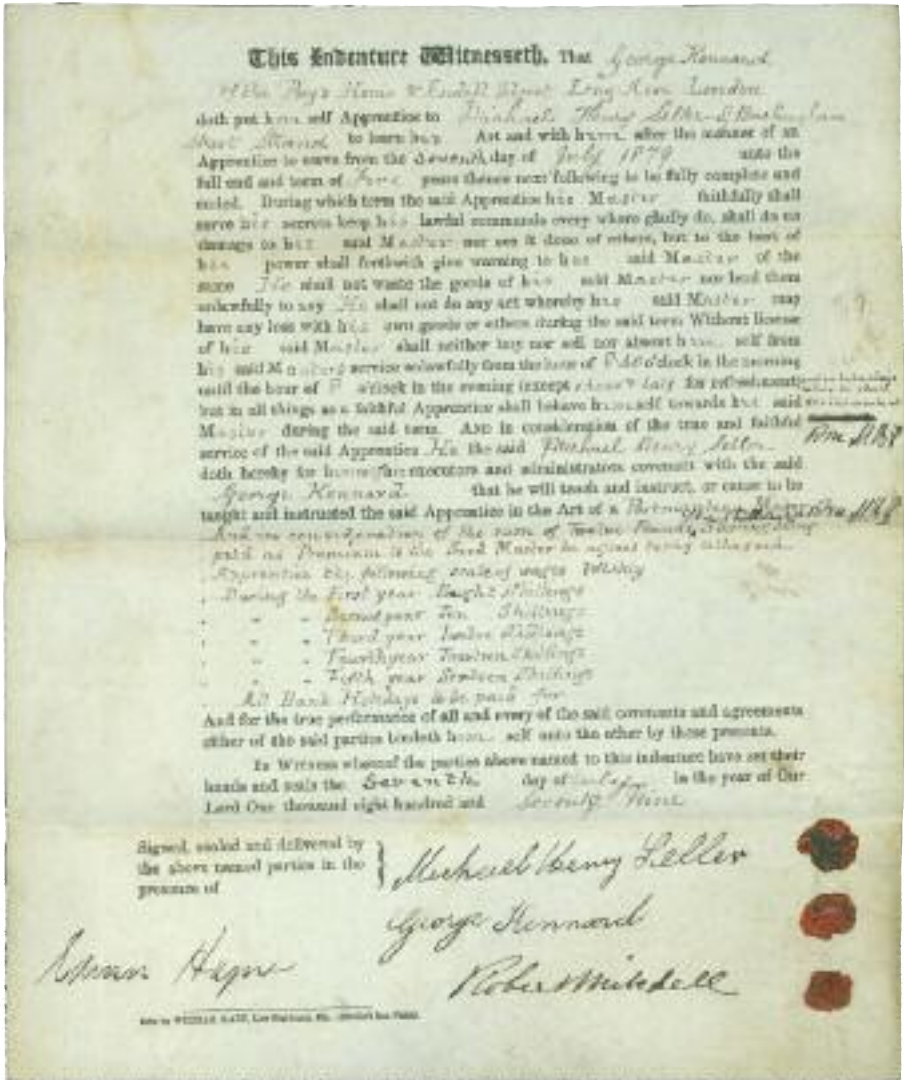 This Indenture Witnesseth, That George Kennard
of the Boys Home Endell Street Long Acre London
doth put himself Apprentice to Michael Henry Seller Buckingham
Street Strand to learn his Art and with him after the manner of an
Apprentice to serve from the seventh day of July 1879 unto the
full end and term of Five years thence next following to be fully complete and
ended. During which term the said Apprentice his Master faithfully shall
serve his secrets keep his lawful commands every where gladly do, shall do no
damage to his said Master nor see it done of others, but to the best of
his power shall forthwith give warning to his said Master of the
same He shall not waste the goods of his said Master nor lend them
unlawfully to any He shall not do any act whereby his said Master may
have any loss with his own goods or others during the said term Without license
of his said Master shall neither buy nor sell nor absent him self from
his said Masters service unlawfully from the hour of 8 o'clock in the morning
until the hour of 8 o'clock in the evening (except for refreshment
but in all things as a faithful Apprentice shall behave himself towards his said
Master during the said term. And in consideration of the true and faithful
service of the said Apprentice He the said Michael Henry Seller
doth hereby for executors and administrators covenant with the said
George Kennard that he will teach and instruct, or cause to be
taught and instructed the said Apprentice in the Art of a
And in consideration of the sum of Twelve Pounds
paid as Premium to the said Master he agrees
Apprentice the following scale of wages Weekly
During the First year Eight Shillings
" " " Second year Ten Shillings
" " " Third year Twelve Shillings
" " " Fourth year Fourteen Shillings
" " " Fifth year Sixteen Shillings
All Bank Holidays to be paid for
And for the true performance of all and every of the said covenants and agreements
either of the said parties bindeth him self unto the other by these presents.
In Witness whereof the parties above named to this indenture have set their
hands and seals the Seventh day of July in the year of Our
Lord One thousand eight hundred and Seventy Nine
Signed, sealed and delivered by
the above named parties in the
presence of
Michael Henry Seller
George Kennard
Robert Mitchell